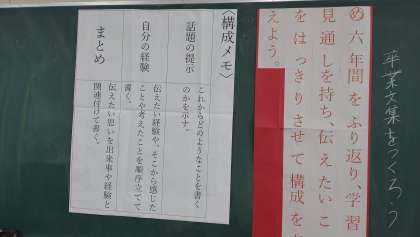 卒業文集をつくろう
め 六年間をふり返り、学習
見通しを持ち、伝えたいこ
をはっきりさせて構成を
えよう。
〈構成メモ〉
話題の提示
これからどのようなことを書く
のかを示す。
自分の経験
伝えたい経験や、そこから感じた
ことや考えたことを順序立てて
書く。
まとめ
伝えたい思いを出来事や経験と
関連付けて書く。